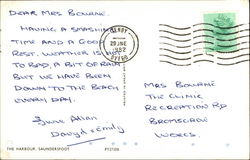 DEAR MRS BOURNE.
HAVING A SMASHING
TIME AND A GOOD
REST. WEATHER IS NOT
TO BAD, A BIT OF RAIN
BUT WE HAVE BEEN
DOWN TO THE BEACH
EVERY DAY.
Love Adrian
Daryd & Emily
MRS BOURNE
THE CLINIC
RECREATION RD
BROMSGROVE
WORCS.
29 JNE
1982
THE HARBOUR, SAUNDERSFOOT